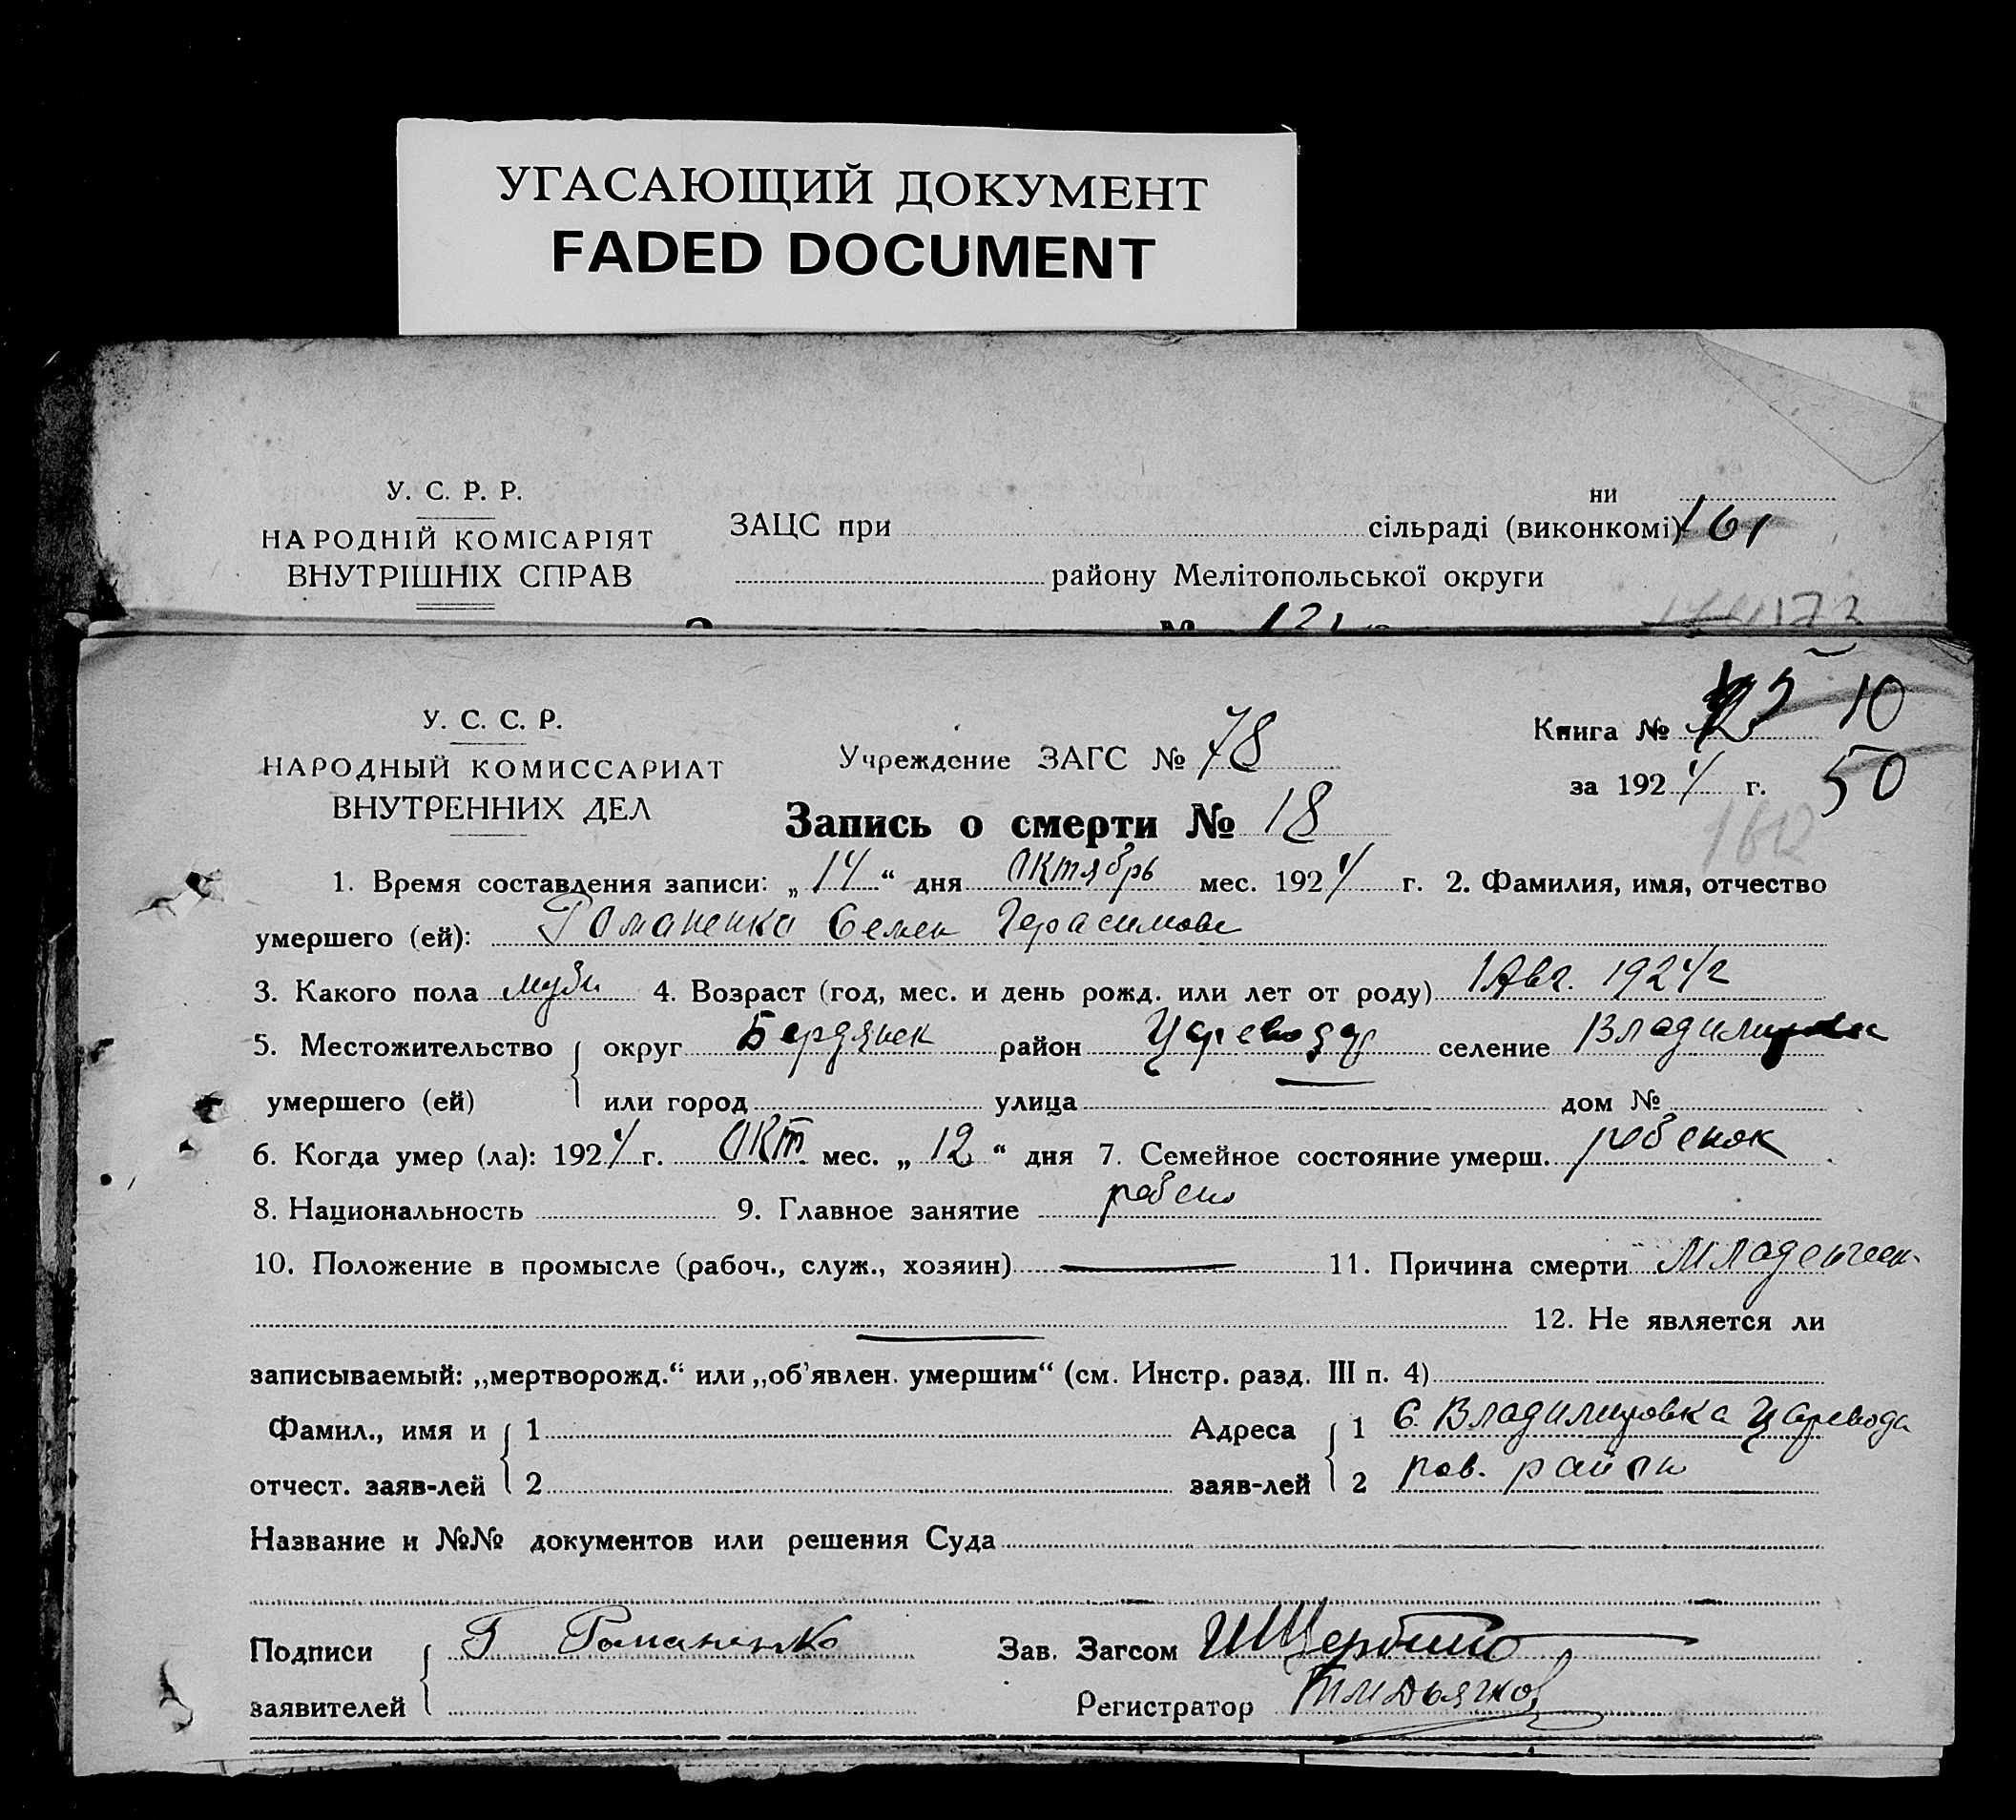 УГАСАЮЩИЙ ДОКУМЕНТ
FADED DOCUMENT
У. С. Р. Р.
НАРОДНІЙ КОМІСАРІЯТ
ВНУТРІШНІХ СПРАВ
ни
ЗАЦС при сільраді (виконкомі) 161
району Мелітопольської округи
У. С. С. Р.
НАРОДНЫЙ КОМИССАРИАТ
ВНУТРЕННИХ ДЕЛ
Учреждение ЗАГС № 78
Книга № 10
за 1924 г. 50
Запись о смерти № 18
1. Время составления записи: „14“ дня Октябрь мес. 1924 г. 2. Фамилия, имя, отчество
умершего (ей): Романенко Семен Герасимов
3. Какого пола муж 4. Возраст (год, мес. и день рожд. или лет от роду) 1 Авг. 1924 г
5. Местожительство округ Бердянск район Цареводар селение Владимировка
умершего (ей) или город улица дом №
6. Когда умер (ла): 1924 г. Окт мес. „12“ дня 7. Семейное состояние умерш. ребенок
8. Национальность 9. Главное занятие ребено
10. Положение в промысле (рабоч., служ., хозяин) 11. Причина смерти Младенческ
12. Не является ли
записываемый: „мертворожд.“ или „об'явлен. умершим“ (см. Инстр. разд. III п. 4)
Фамил., имя и 1 Адреса 1 С. Владимировка Царевода
отчест. заяв-лей 2 заяв-лей 2 ров. район
Название и №№ документов или решения Суда
Подписи Г Романенко Зав. Загсом И Щербина
заявителей Регистратор